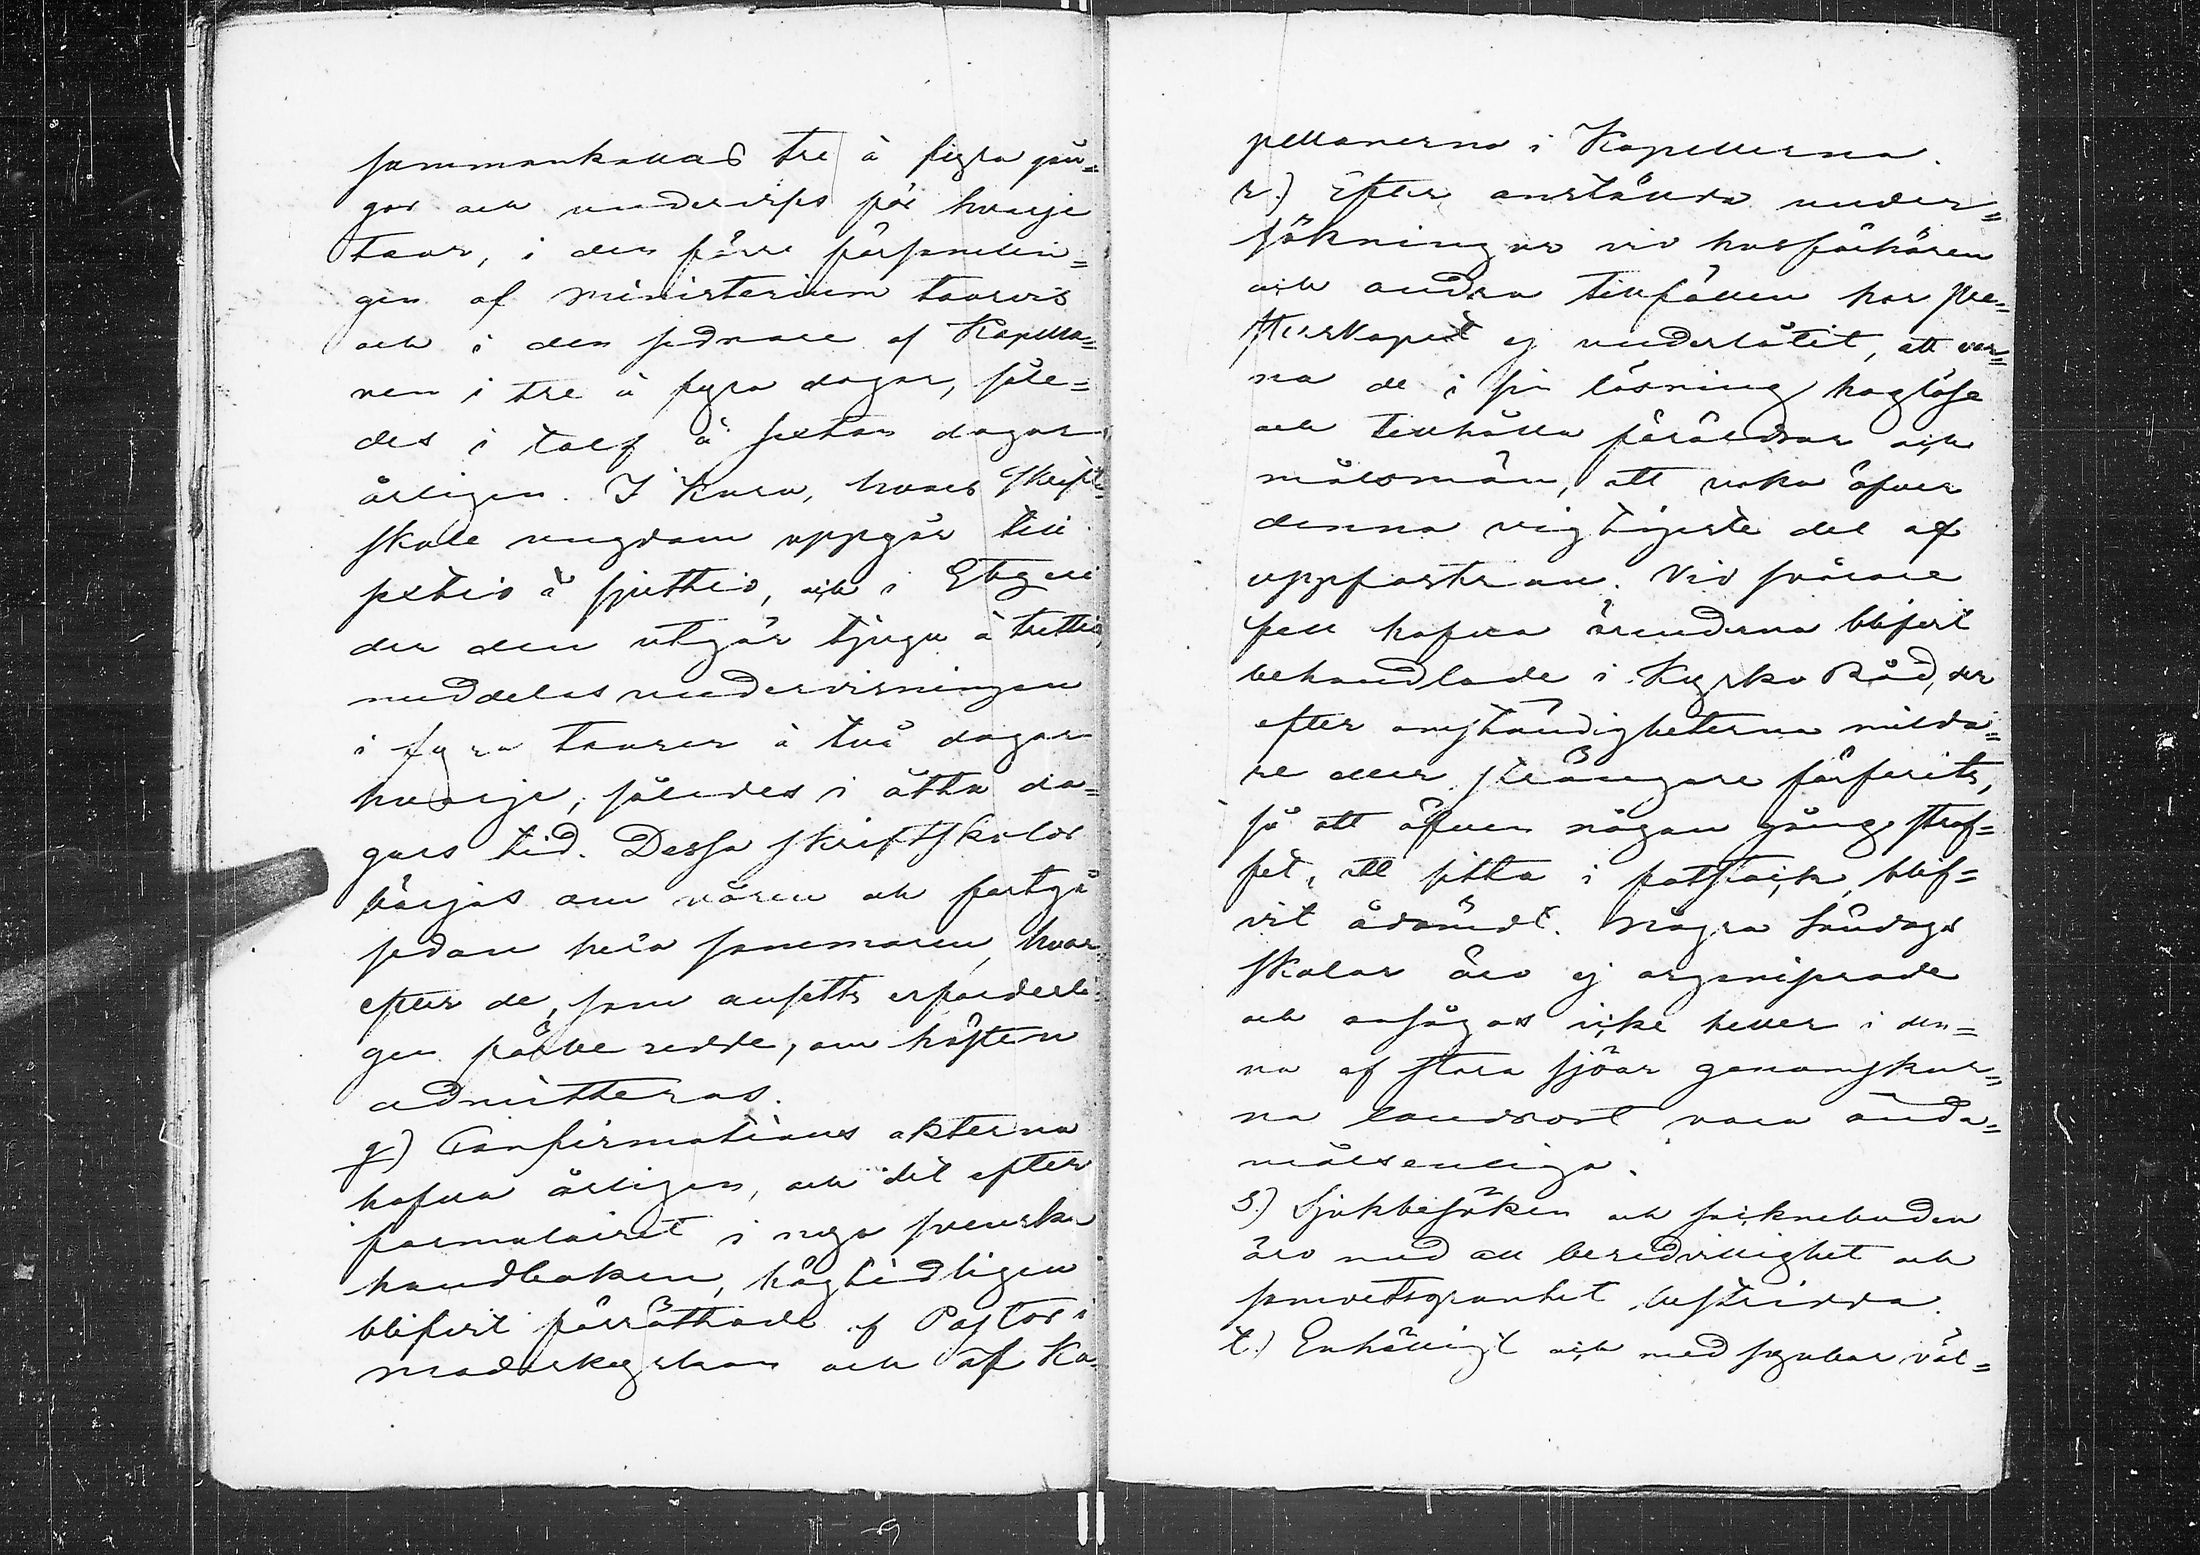 sammankallas tre à fyra gån=
gor och undervises för hvarje
tour, i den förre församlin=
gen af Ministerium tourvis
och i den sednare af Kapella=
nen i tre à fyra dagar, såle=
des i tolf à sexton dagar
årligen. I Karu, hvars skrift=
skole ungdom uppgår till
sextio à sjuttio, och i
der den utgör tjugu à trettio,
meddelas undervisningen
i fyra tourer à två dagar
hvarje, således i åtta da=
gars tid. Dessa skriftskolor
börjas om våren och fortgå
sedan hela sommaren, hvar=
efter de, som ansetts erforderli=
gen förberedde, om hösten
admitteras.
q) Confirmations akterna
hafva årligen, och det efter
formulairet i nya svenska
handboken, högtidligen
blifvit förrättade af Pastor i
moderkyrkan och af Ka=
pellanerna i Kapellerna.
r.) Efter anställda under=
sökningar vid husförhören
och andra tillfällen har Pre=
sterskapet ej underlåtit, att var=
na de i sin läsning håglöse
och tillhålla föräldrar och
målsmän, att vaka öfver
denna vigtigaste del af
uppfostran. Vid svårare
fall hafva ärenderna blifvit
behandlade i Kyrko Råd, der
efter omständigheterna milda=
re eller strängare förfarits,
så att äfven någon gång straf=
fet, att sitta i fotstock, blif=
vit ådömdt. Några Söndags
skolor äro ej organiserade
och ansågos icke heller i den=
na af stora sjöar genomskur=
na landsort vara ända=
målsenliga.
s.) Sjukbesöken och socknebuden
äro med all beredvillighet och
samvetsgranhet bestridda.
t.) Enhälligt och med synbar väl=